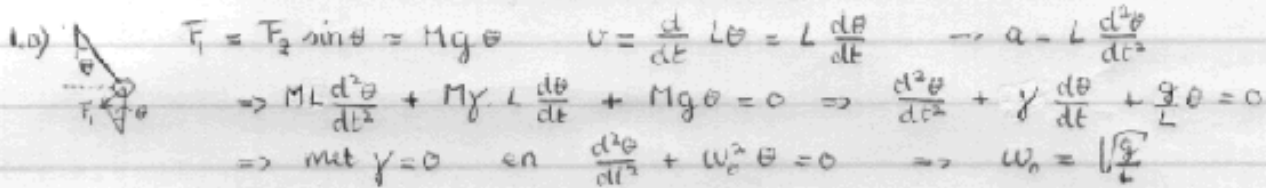 1.a) θ F₁ θ F₁ = F₂ sin θ ≈ Mgθ v = d/dt Lθ = L dθ/dt → a = L d²θ/dt²
=> ML d²θ/dt² + Mγ L dθ/dt + Mgθ = 0 => d²θ/dt² + γ dθ/dt + g/L θ = 0
=> met γ = 0 en d²θ/dt² + ω₀² θ = 0 => ω₀ = √(g/L)